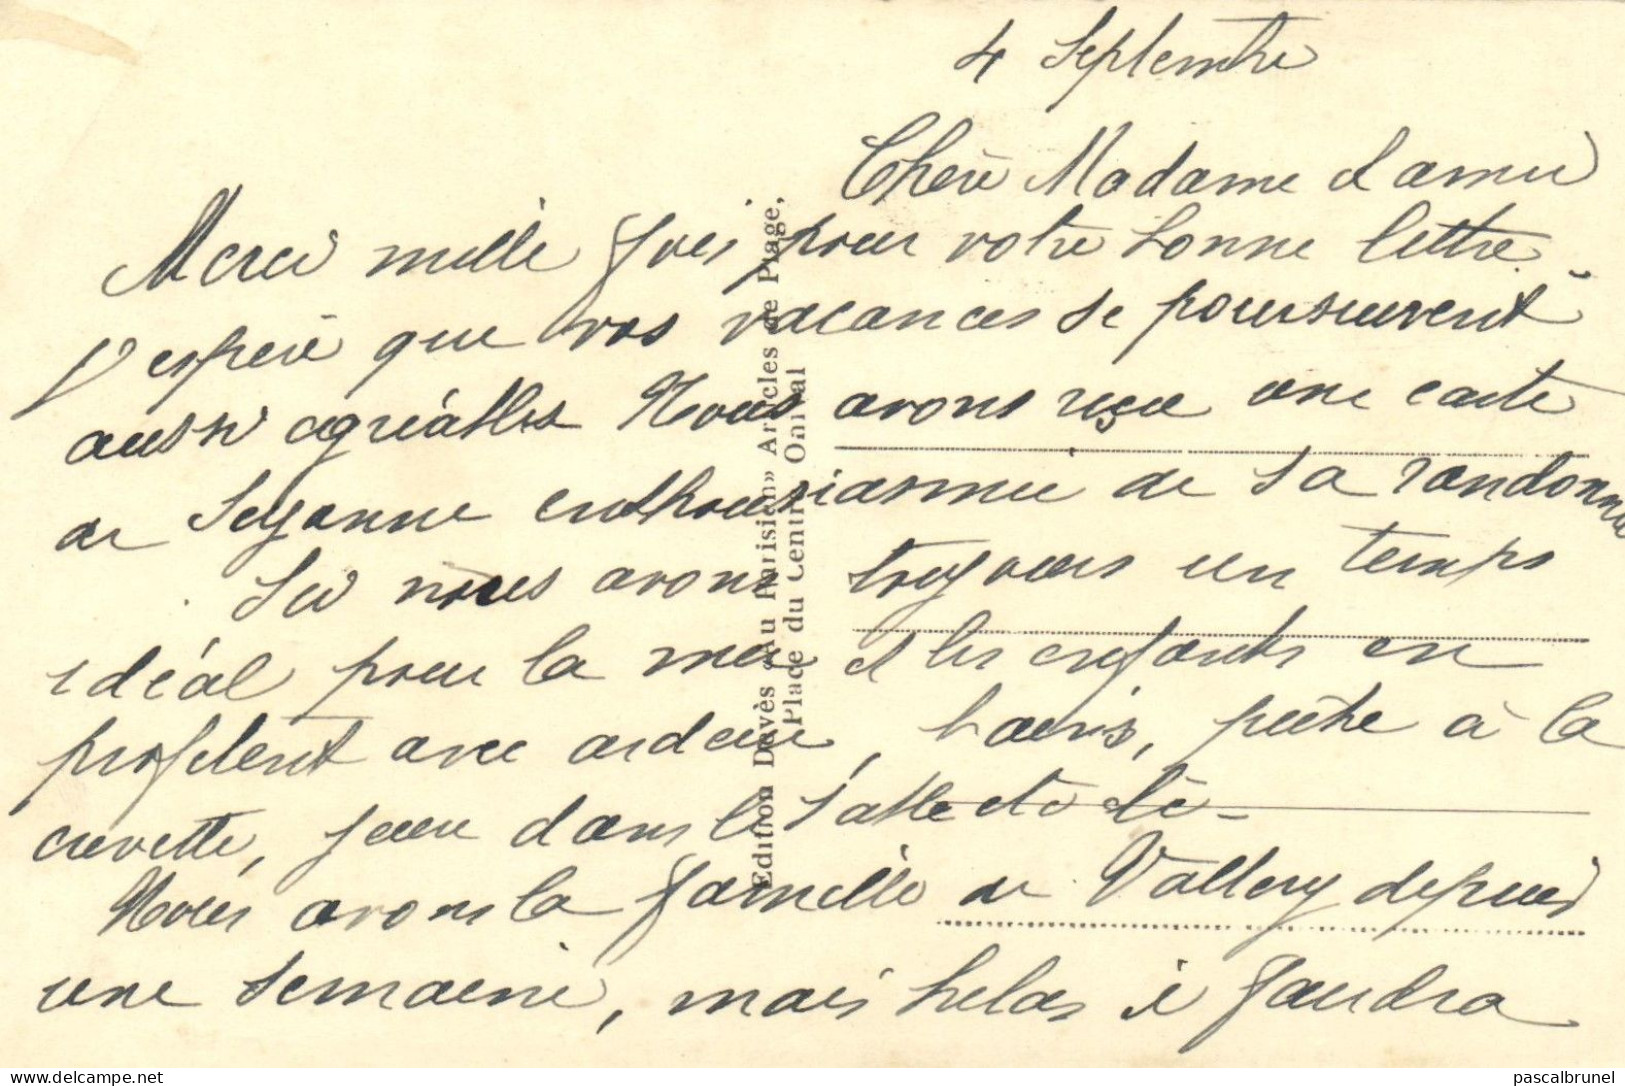 4 Septembre
Chère Madame et amie
Merci mille fois pour votre bonne lettre.
J'espère que vos vacances se poursuivent
aussi agréables Nous avons reçu une carte
de Suzanne enthousiasmée de sa randonnée
Ici nous avons toujours un temps
idéal pour la mer et les enfants en
profitent avec ardeur, bains, pêche à la
crevette, jeux dans le sable etc etc -
Nous avons la famille de Vallery depuis
une semaine, mais helas il faudra
Edition Devès «Au Parisien» Articles de Plage,
Place du Centre Onival
pascalbrunel